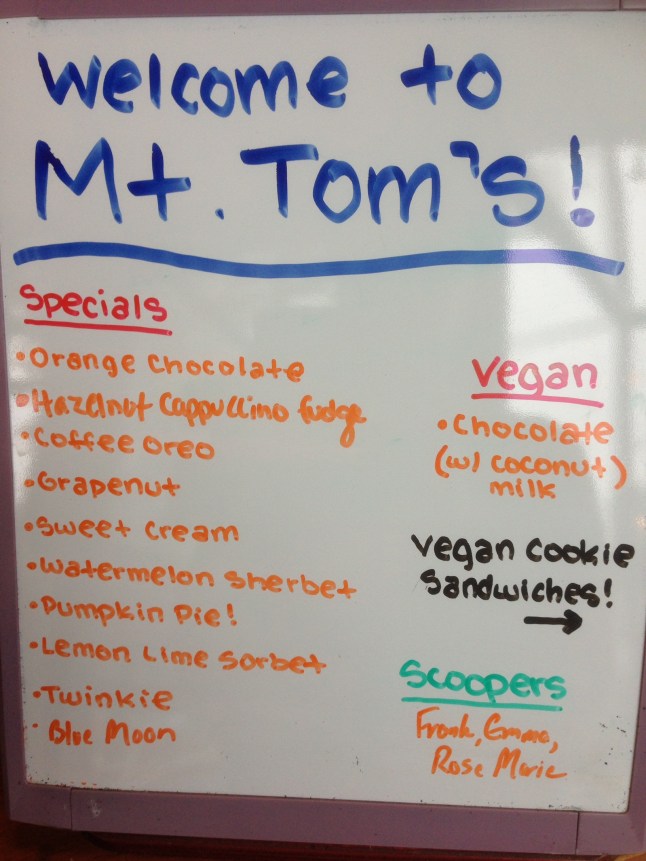 Welcome to
Mt. Tom's!
Specials
• Orange Chocolate
• Hazelnut Cappuccino fudge
• Coffee Oreo
• Grapenut
• Sweet Cream
• Watermelon Sherbet
• Pumpkin Pie!
• Lemon Lime Sorbet
• Twinkie
• Blue Moon
Vegan
• Chocolate
(w/ coconut)
milk
Vegan Cookie
Sandwiches!
→
Scoopers
Frank, Emma,
Rose Marie